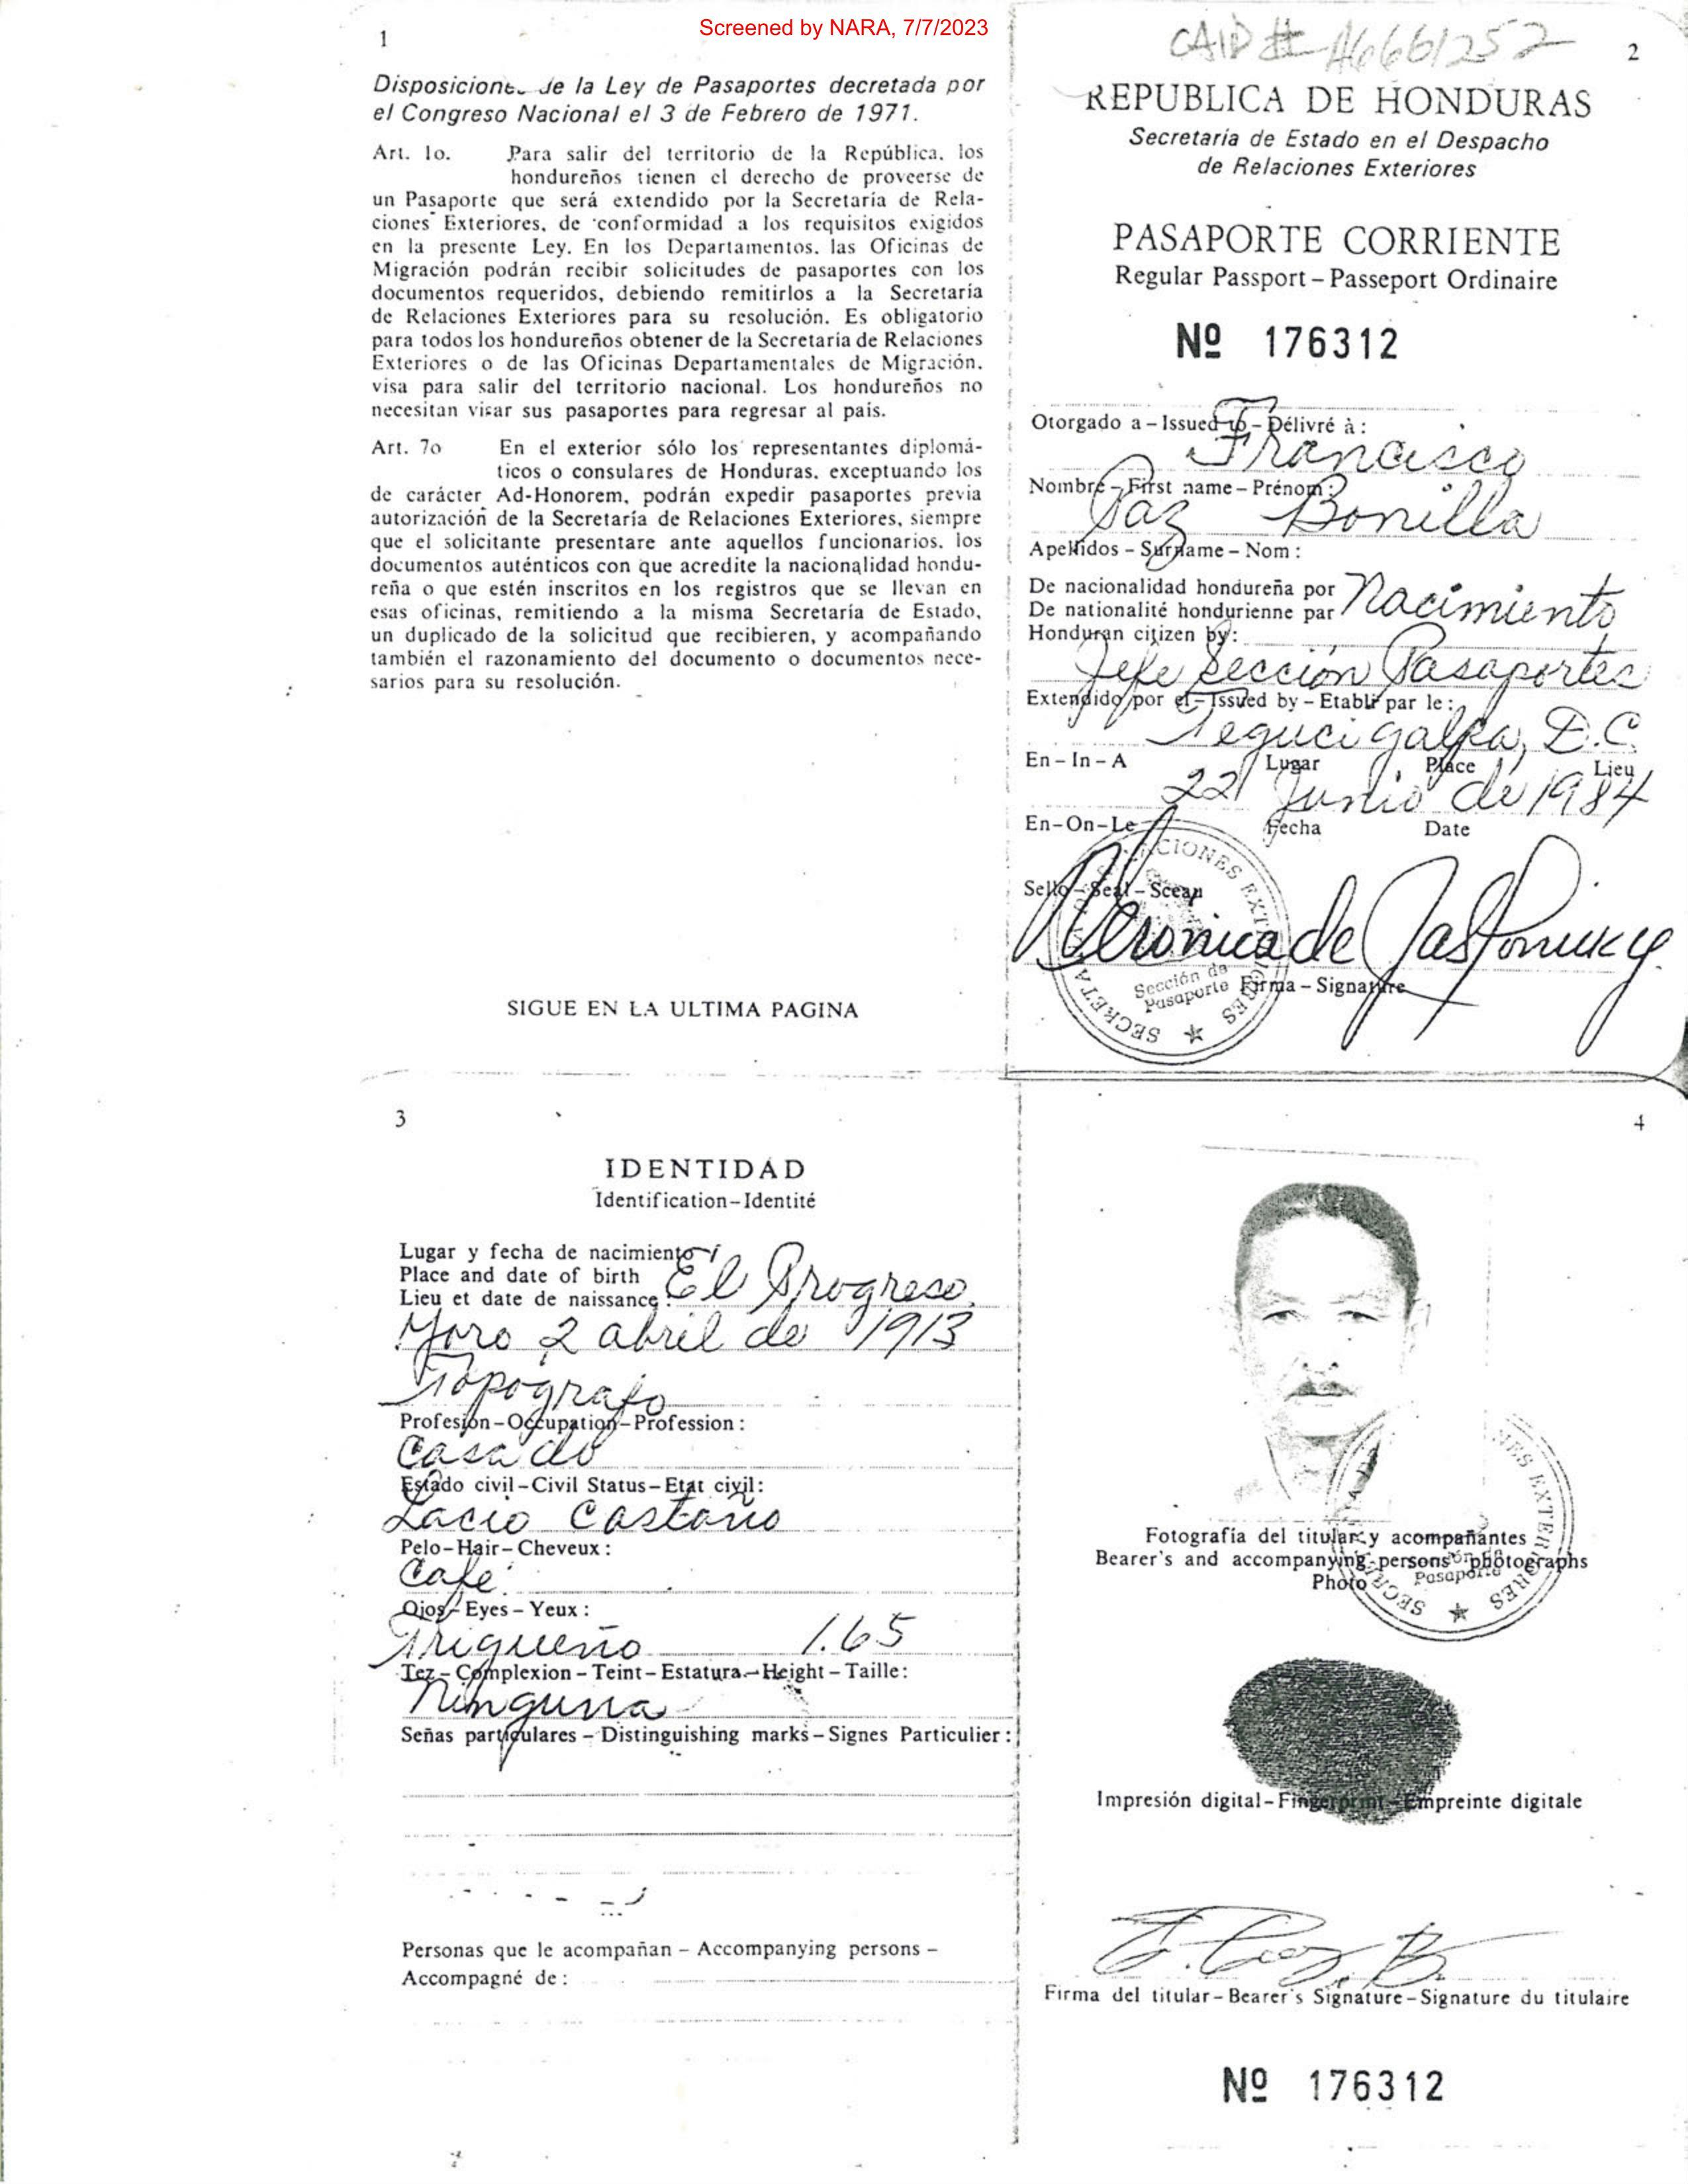 Screened by NARA, 7/7/2023
1
Disposiciones de la Ley de Pasaportes decretada por
el Congreso Nacional el 3 de Febrero de 1971.
Art. 1o. Para salir del territorio de la República, los
hondureños tienen el derecho de proveerse de
un Pasaporte que será extendido por la Secretaría de Rela-
ciones Exteriores, de conformidad a los requisitos exigidos
en la presente Ley. En los Departamentos, las Oficinas de
Migración podrán recibir solicitudes de pasaportes con los
documentos requeridos, debiendo remitirlos a la Secretaría
de Relaciones Exteriores para su resolución. Es obligatorio
para todos los hondureños obtener de la Secretaría de Relaciones
Exteriores o de las Oficinas Departamentales de Migración,
visa para salir del territorio nacional. Los hondureños no
necesitan visar sus pasaportes para regresar al país.
Art. 7o En el exterior sólo los representantes diplomá-
ticos o consulares de Honduras, exceptuando los
de carácter Ad-Honorem, podrán expedir pasaportes previa
autorización de la Secretaría de Relaciones Exteriores, siempre
que el solicitante presentare ante aquellos funcionarios, los
documentos auténticos con que acredite la nacionalidad hondu-
reña o que estén inscritos en los registros que se llevan en
esas oficinas, remitiendo a la misma Secretaría de Estado,
un duplicado de la solicitud que recibieren, y acompañando
también el razonamiento del documento o documentos nece-
sarios para su resolución.
SIGUE EN LA ULTIMA PAGINA
CAID # A6661252
2
REPUBLICA DE HONDURAS
Secretaria de Estado en el Despacho
de Relaciones Exteriores
PASAPORTE CORRIENTE
Regular Passport – Passeport Ordinaire
Nº 176312
Otorgado a – Issued to – Délivré à :
Francisco
Nombre – First name – Prénom :
Paz Bonilla
Apellidos – Surname – Nom :
De nacionalidad hondureña por
De nationalité hondurienne par Nacimiento
Honduran citizen by:
Jefe Sección Pasaportes
Extendido por el – Issued by – Etabli par le :
Tegucigalpa, D.C.
En – In – A Lugar Place Lieu
22 Junio de 1984
En–On–Le Fecha Date
Sello – Seal – Sceau
Sección de
Pasaporte
Firma – Signature
3
IDENTIDAD
Identification–Identité
Lugar y fecha de nacimiento
Place and date of birth
Lieu et date de naissance : El Progreso,
Yoro 2 abril de 1913
Topografo
Profesión–Occupation–Profession :
Casado
Estado civil–Civil Status–Etat civil:
Lacio Castaño
Pelo–Hair–Cheveux :
Café
Ojos–Eyes–Yeux :
Trigueño 1.65
Tez–Complexion–Teint–Estatura–Height–Taille:
Ninguna
Señas particulares – Distinguishing marks – Signes Particulier :
Personas que le acompañan – Accompanying persons –
Accompagné de :
4
Fotografía del titular y acompañantes
Bearer's and accompanying persons' photographs
Photo
Pasaporte
Impresión digital–Fingerprint–Empreinte digitale
F. Paz B.
Firma del titular–Bearer's Signature–Signature du titulaire
Nº 176312